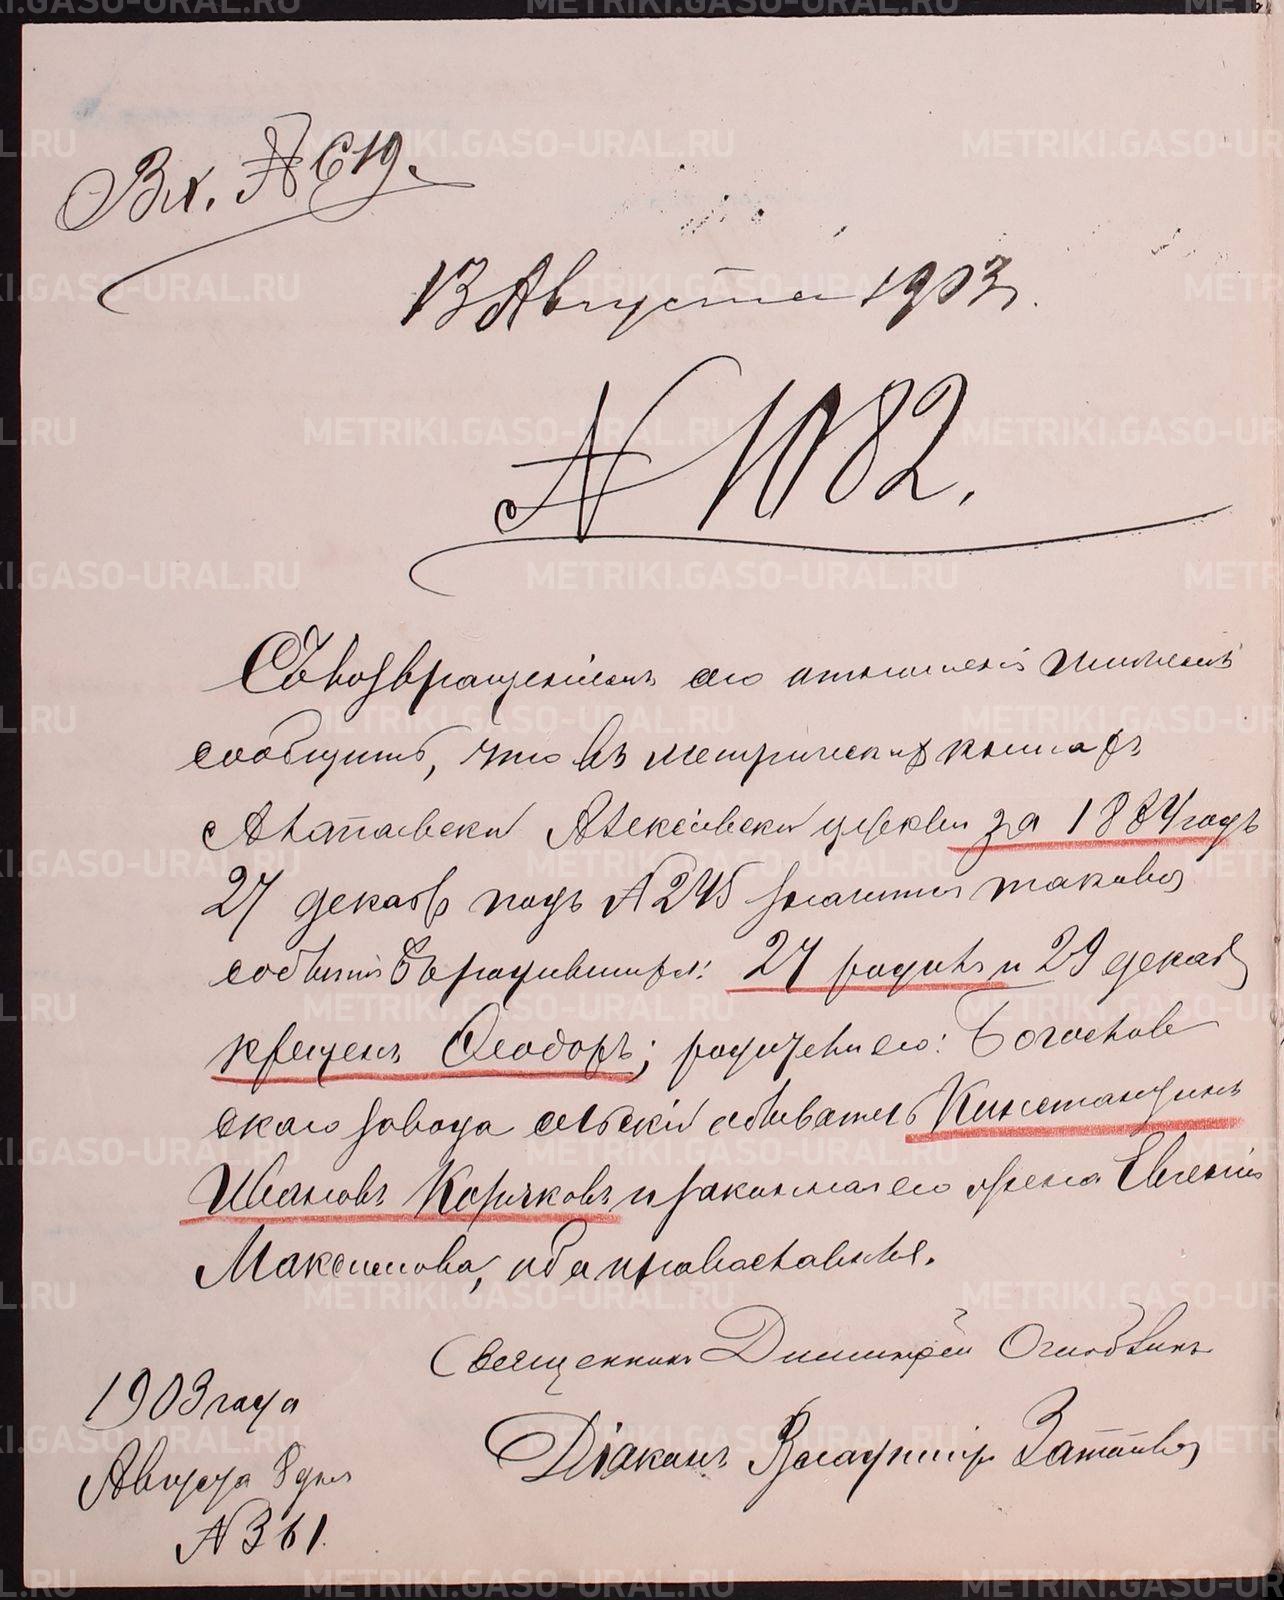 Вх. № 619.
13 Августа 1903 г.
№ 1082.
Съ возвращеніемъ сего отношенія
сообщить, что въ метрическихъ книгахъ
Алапаевской Алексѣевской церкви за 1884 годъ
27 декаб. подъ № 245 значится такова
событіе о родившихся: 27 родился и 29 декаб.
крещенъ Ѳеодоръ; родители его: Богослов
скаго завода сельскій обыватель Константинъ
Ивановъ Коряковъ и законная его жена Евгенія
Максимова, оба православные.
Священникъ Димитрій
1903 года
Діаконъ Владиміръ
Августа 8 дня
№ 361.